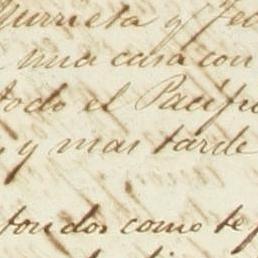 Murrieta y Fe
una casa con
todo el Pacífi
, y mas tarde
tondos como te